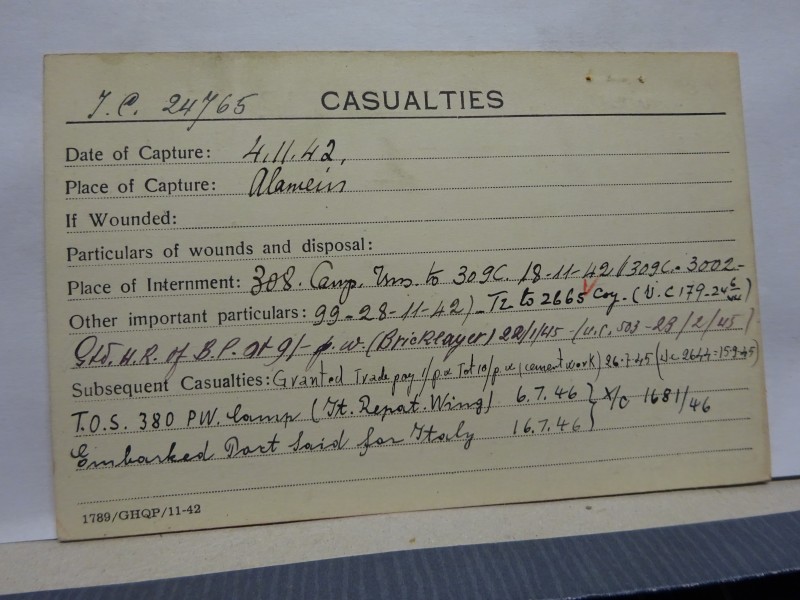 I.C. 24765 CASUALTIES
Date of Capture: 4.11.42.
Place of Capture: Alamein
If Wounded:
Particulars of wounds and disposal:
Place of Internment: 308. Camp. Trns. to 309C. 18-11-42 (309C.-3002-
Other important particulars: 99-28-11-42) - Tr to 2665 Coy - (U.C 179-24
Gtd. H.R. of B.P. at 9/- p.w. (Bricklayer) 22/1/45 - (U.C. 503-28/2/45)
Subsequent Casualties: Granted Trade pay 1/ p.w Tot 10/ p.w (cement work) 26.7.45 (Uc 2644-15945)
T.O.S. 380 PW. Camp (It. Repat. Wing) 6.7.46 } X/C 1681/46
Embarked Port Said for Italy 16.7.46 }
1789/GHQP/11-42